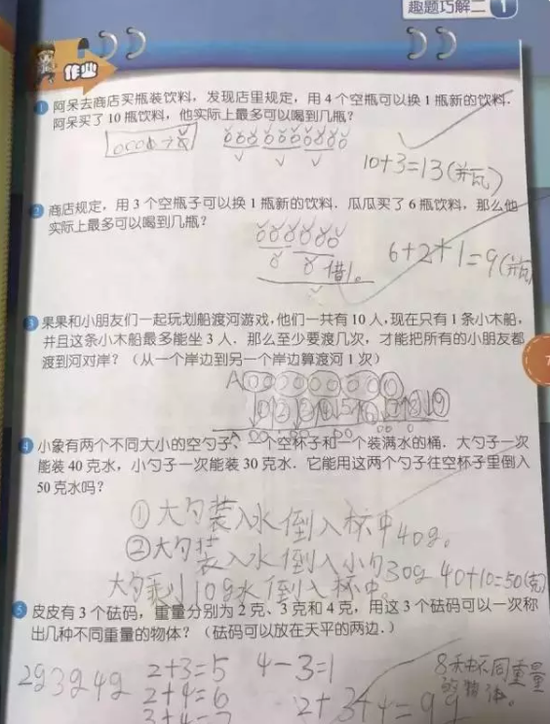 趣题巧解二 1
作业
1 阿呆去商店买瓶装饮料，发现店里规定，用 4 个空瓶可以换 1 瓶新的饮料．
阿呆买了 10 瓶饮料，他实际上最多可以喝到几瓶？
10+3=13(瓶)
2 商店规定，用 3 个空瓶子可以换 1 瓶新的饮料．瓜瓜买了 6 瓶饮料，那么他
实际上最多可以喝到几瓶？
借1。
6+2+1=9(瓶)
3 果果和小朋友们一起玩划船渡河游戏，他们一共有 10 人，现在只有 1 条小木船，
并且这条小木船最多能坐 3 人．那么至少要渡几次，才能把所有的小朋友都
渡到河对岸？（从一个岸边到另一个岸边算渡河 1 次）
A
1 2 3 4 5 6 7 8 9
4 小象有两个不同大小的空勺子、一个空杯子和一个装满水的桶．大勺子一次
能装 40 克水，小勺子一次能装 30 克水．它能用这两个勺子往空杯子里倒入
50 克水吗？
①大勺装入水倒入杯中40g。
②大勺装入水倒入小勺30g
大勺剩10g水倒入杯中。 40+10=50(克)
5 皮皮有 3 个砝码，重量分别为 2 克、3 克和 4 克，用这 3 个砝码可以一次称
出几种不同重量的物体？（砝码可以放在天平的两边．）
2g 3g 4g 2+3=5 4-3=1 8种不同重量
2+4=6 的物体。
3+4=7 2+3+4=9g